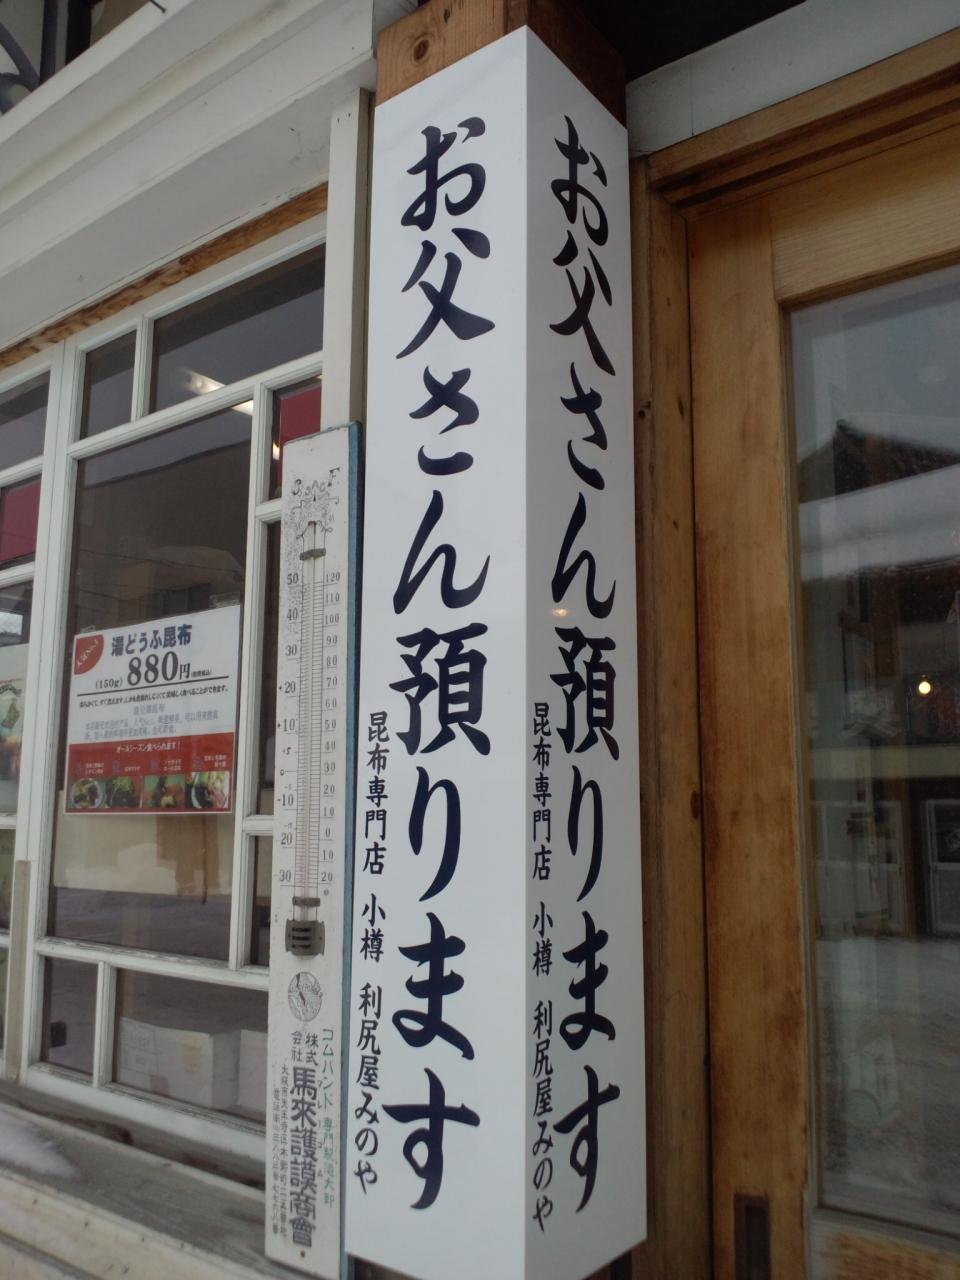 お父さん預ります
昆布専門店 小樽 利尻屋みのや
お父さん預ります
昆布専門店 小樽 利尻屋みのや
湯どうふ昆布
(150g) 880円
オールシーズン食べられます!
C F
50 120
40
30
20
10
10
20
30
110
100
90
80
70
60
50
40
30
20
10
0
10
20
ゴムバンド 専門製造大卸
株式会社 馬來護謨商會